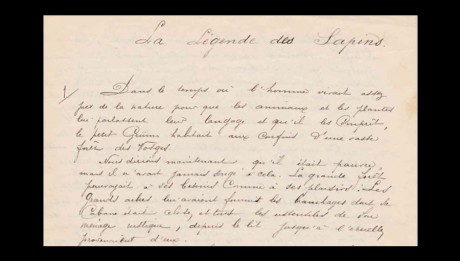 La Légende des Sapins.
1/ Dans le temps où l'homme vivait assez
près de la nature pour que les animaux et les plantes
lui parlassent leur langage et qu'il les comprît,
le petit habitait aux confins d'une vaste
forêt des Vosges.
Nous dirions maintenant qu'il était pauvre
mais il n'avait jamais songé à cela. La grande forêt
pourvoyait à ses besoins comme à ses plaisirs. Les
grands arbres lui avaient fourni les branchages dont sa
cabane était faite, et tous les ustensiles de son
ménage rustique, depuis le lit jusqu'à l'écuelle,
provenaient d'eux.